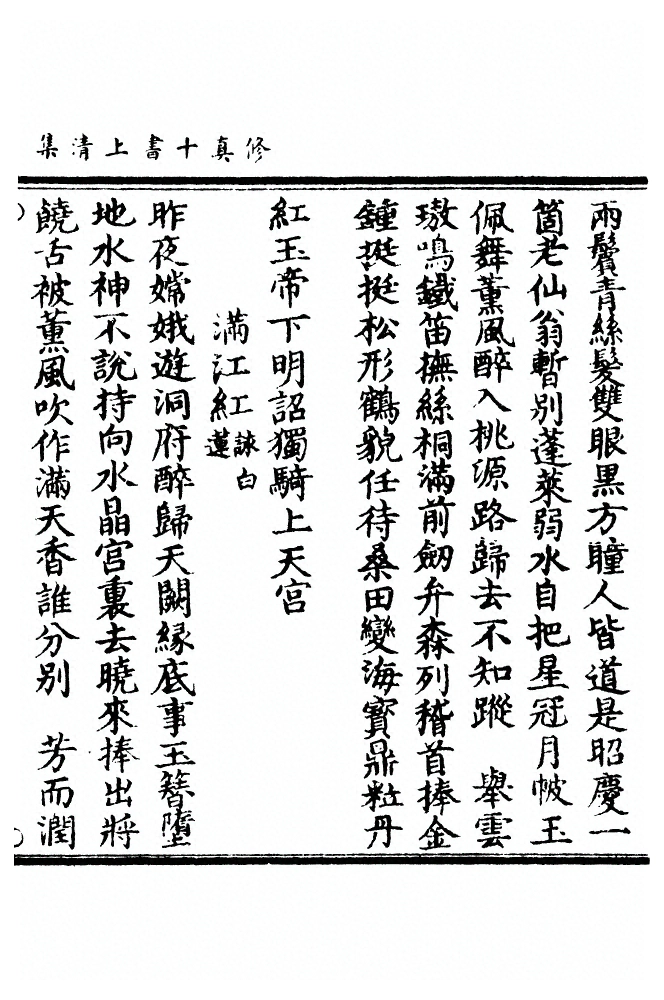 修真十書上清集
兩鬢青絲髮雙眼黒方瞳人皆道是昭慶一
箇老仙翁暫別蓬萊弱水自把星冠月帔玉
佩舞薰風醉入桃源路歸去不知蹤　舉雲
璈鳴鐵笛撫絲桐滿前劒弁森列稽首捧金
鍾挺挺松形鶴貌任待桑田變海寶鼎粒丹
紅玉帝下明詔獨騎上天宮
滿江紅詠白蓮
昨夜嫦娥遊洞府醉歸天闕緣底事玉簪墮
地水神不說持向水晶宮裏去曉來捧出將
饒舌被薰風吹作滿天香誰分别　芳而潤